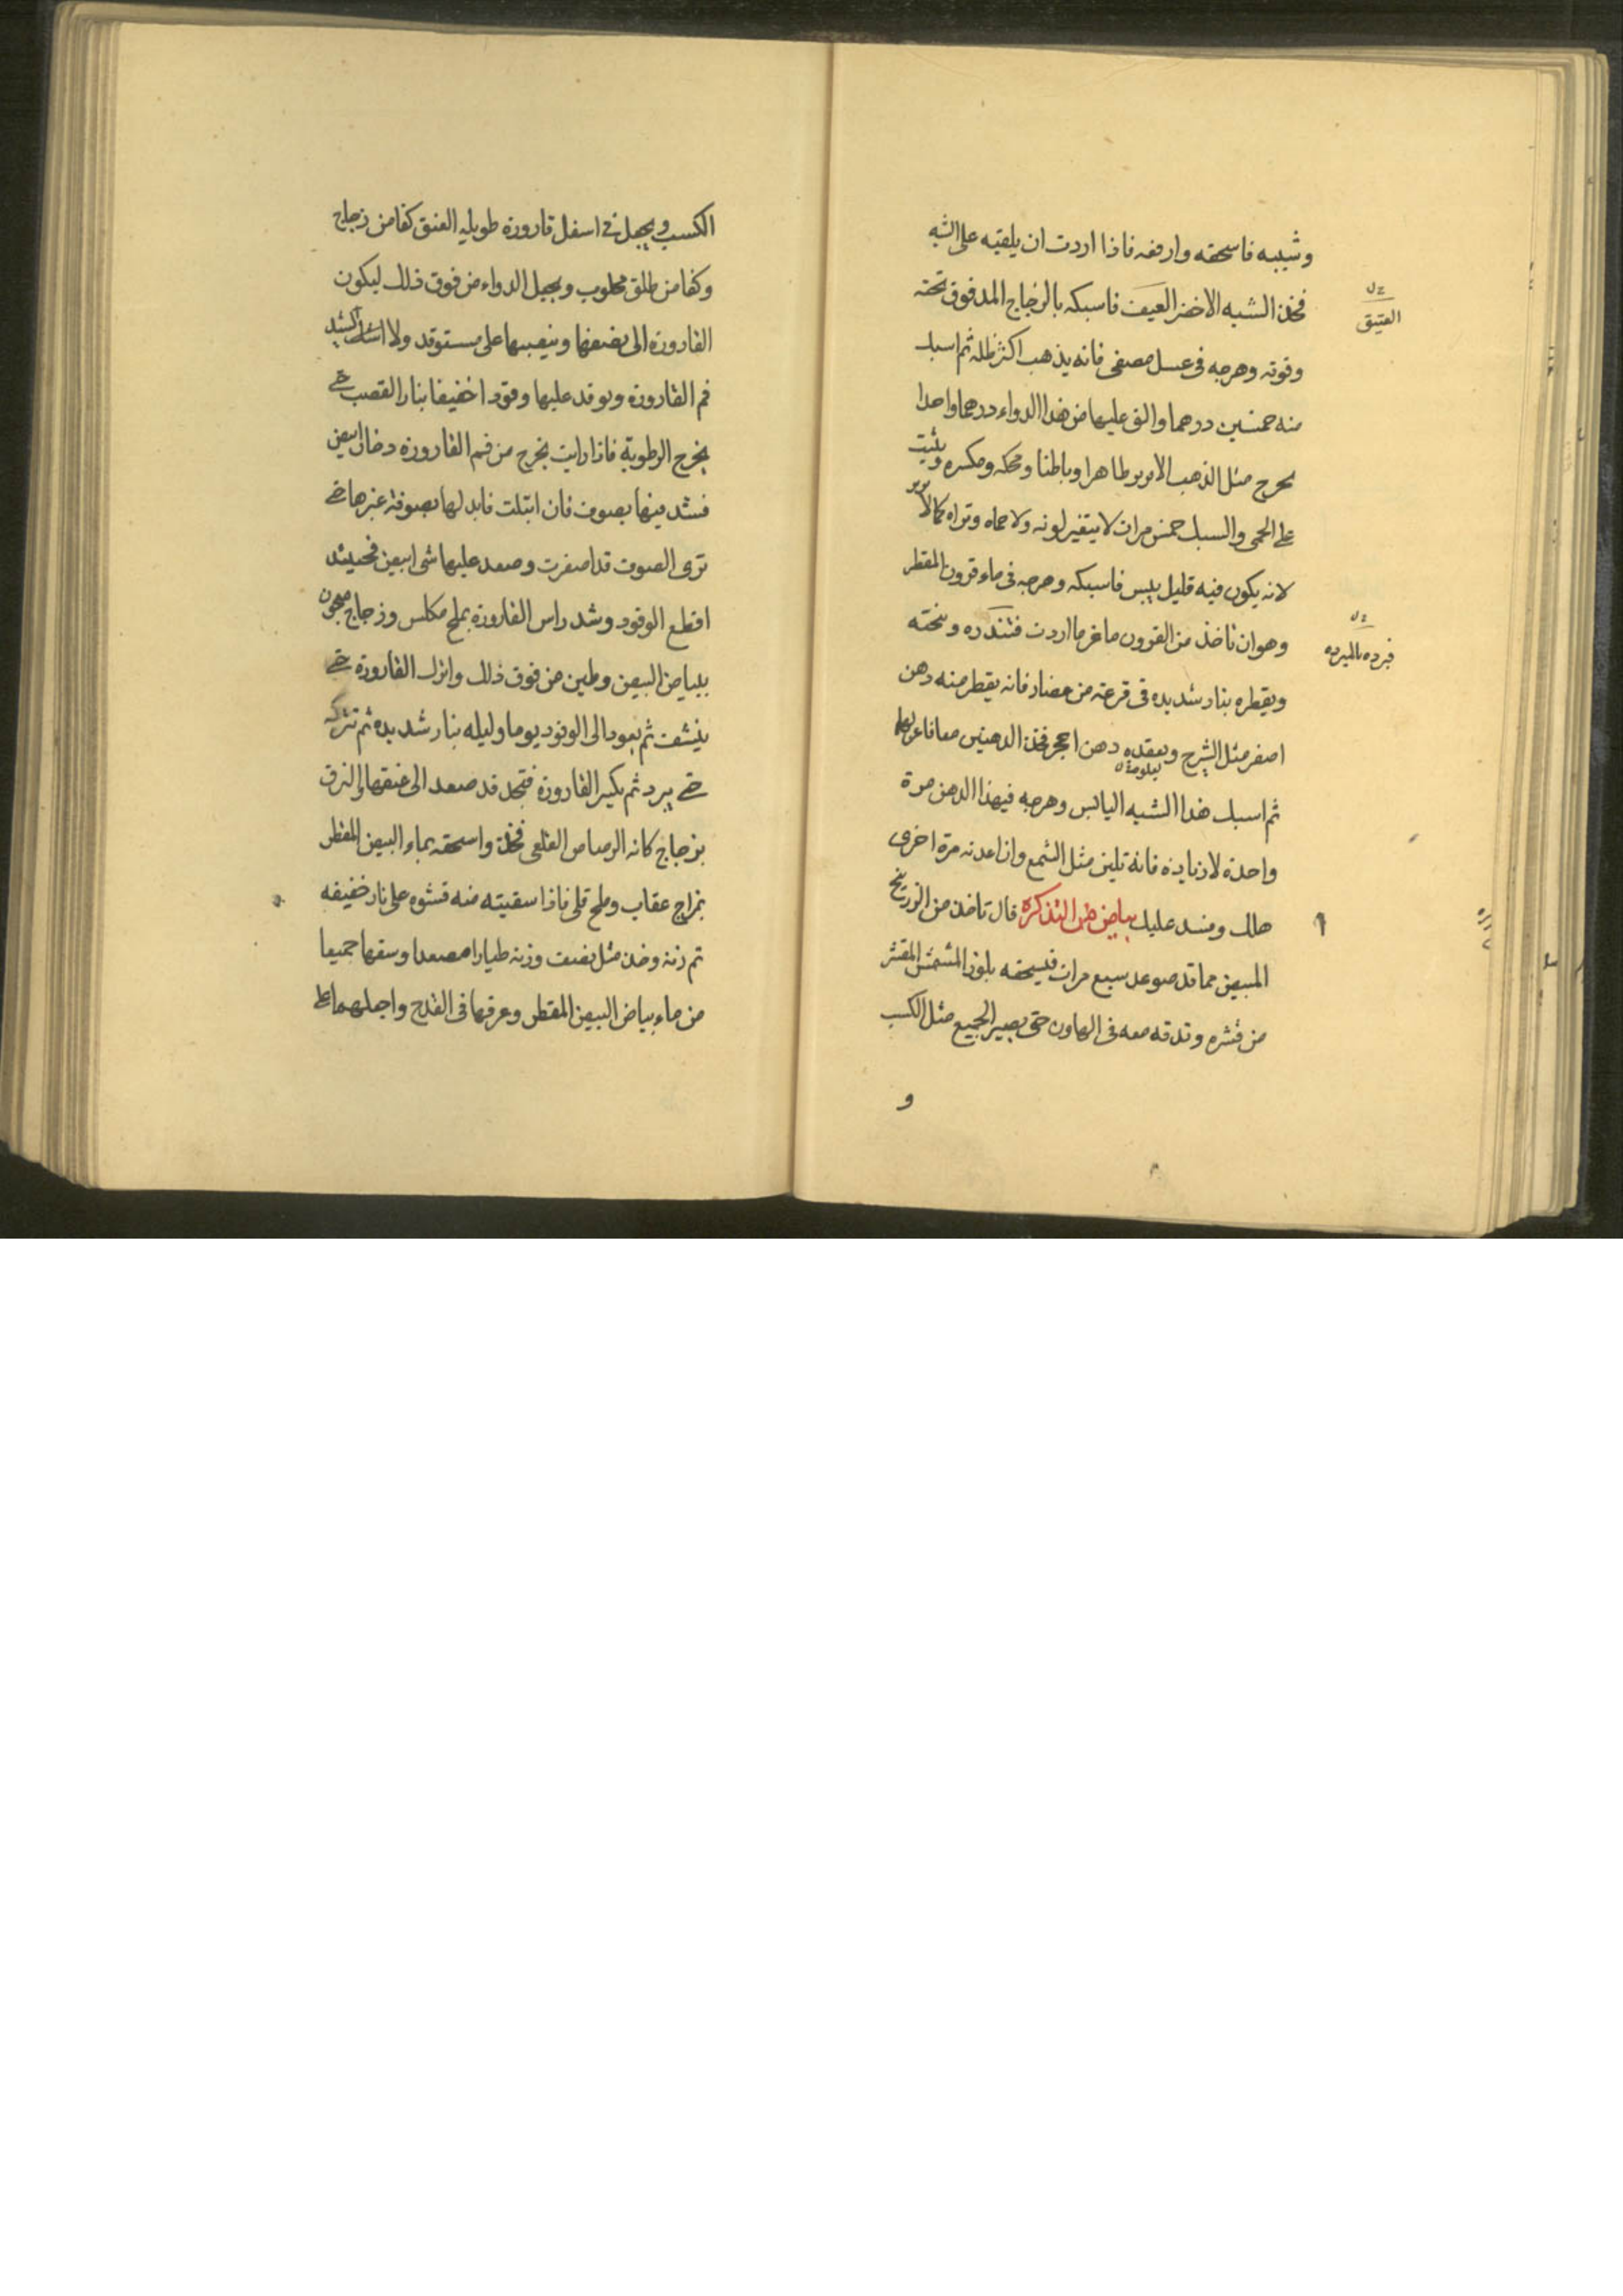 وشببه فاسحقه وارفعه فاذا اردت ان يلقيه على الشبه
فخذ الشبه الاخضر العيف فاسبكه بالزجاج المدقوق تحته
خ ل
العتيق
وفوقه وهرجه فى عسل مصفى فانه يذهب اكثر ظله ثم اسبك
منه خمسين درهما والق عليها من هذا الدواء درهما واحدا
يخرج مثل الذهب الابريز ظاهرا وباطنا ومحكه ومكسره ويثبت
على الحمى والسبك خمس مرات لا يتغير لونه ولا حماه وتراه كالابريز
لانه يكون فيه قليل يبس فاسبكه وهرجه فى ماء قرون المقطر
وهو ان تاخذ من القرون ماعز ما اردت وتنخته
خ ل
فبرده بالمبرده
ويقطره بنار شديده فى قرعة من فخار فانه يقطر منه دهن
اصفر مثل الشيرج ويعقده دهن احمر فخذ الدهنين معا
ثم اسبك هذا الشبه اليابس وهرجه فيهذا الدهن مرة
واحدة لا زيادة فانه تلين مثل الشمع وان اعدته مرة اخرى
هالك وفسد عليك بياض من التذكرة قال تاخذ من الزرنيخ
المبيض مما قد صوعد سبع مرات فيسحقه بلوز المشمش المقشر
من قشره وتدقه معه فى الهاون حتى يصير الجميع مثل الكسب
و
الكسب ويجعل فى اسفل قارورة طويله العنق كفا من زجاج
وكفا من طلق محلوب ويجعل الدواء من فوق ذلك ليكون
القارورة الى نصفها وينصبها على مستوقد ولا
فم القارورة ويوقد عليها وقودا خفيفا بنار القصب حتى
يخرج الرطوبة فاذا رايت يخرج من فم القارورة دخان ابيض
فسد فيها بصوف فان ابتلت فابدلها بصوفة غيرها حتى
ترى الصوف قد اصفرت وصعد عليها شى ابيض فحينئذ
اقطع الوقود وشد راس القارورة بملح مكلس وزجاج معجون
ببياض البيض وطين من فوق ذلك واترك القارورة حتى
ينشف ثم يعود الى الوقود يوما وليله بنار شديده ثم تتركه
حتى يبرد ثم يكسر القارورة فتجد قد صعد الى عنقها والتزق
بزجاج كانه الرصاص القلعى فخذه واسحقه بماء البيض المقطر
بزاج عقاب وملح قلى فاذا سقيته منه فشوه على نار خفيفه
ثم زنه وخذ مثل نصف وزنه طيارا مصعدا وسقها جميعا
من ماء بياض البيض المقطر وعرقها فى القدح واجعلهما على